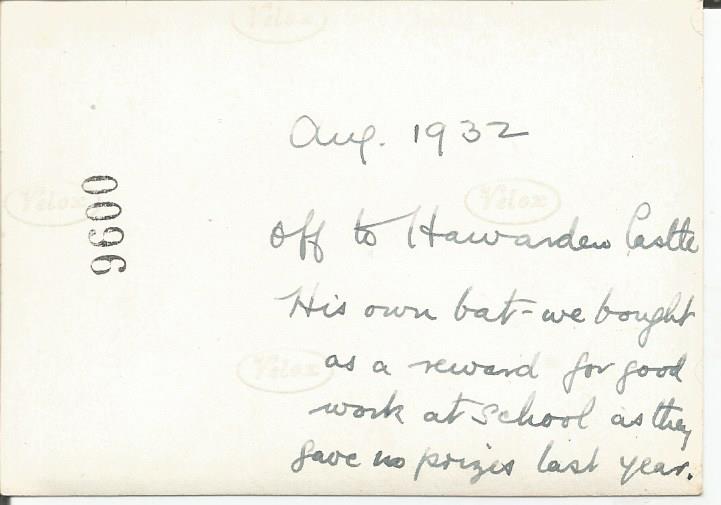 Velox
Aug. 1932
9600
Velox
Velox
off to Hawarden Castle
His own bat - we bought
as a reward for good
Velox
work at school as they
gave no prizes last year.